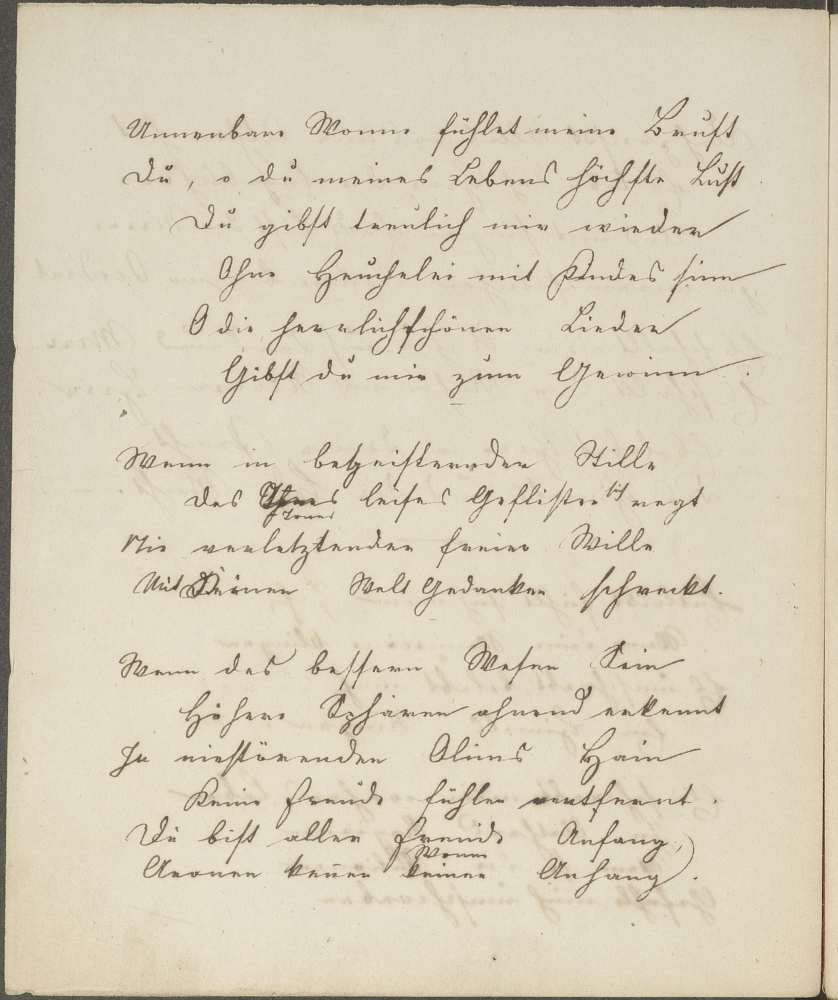 Unnenbare Wonne fühlet meine Brust
Du, o du meines Lebens höchste Lust
Du gibst treulich mir wieder
Ohne Heuchelei mit Kindes sinn
O die herrlichschönen Lieder
Gibst du mir zum Gewinn.
Wenn in begeisternder Stille
Des leises Geflister sich regt
Tones
Nie verletztender freier Wille
Mit Deinen Welt Gedanken schreckt.
Wenn des bessern Wesen Sein
Höhere Sphären ahnend erkennt
In niestörenden Hain
Keine Freude fühlen entfernt.
Du bist aller Freude Anfang,
Wonne
kenen keinen Anhang).